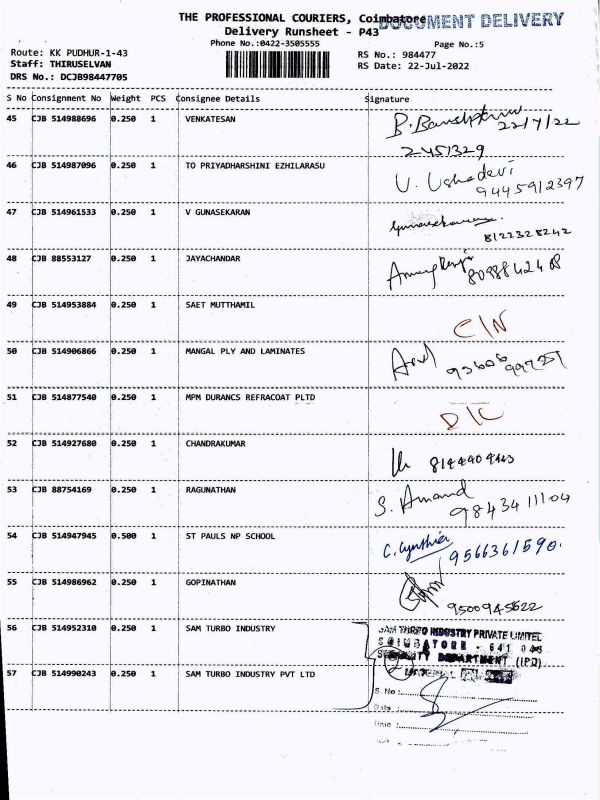 THE PROFESSIONAL COURIERS, Coimbatore
DOCUMENT DELIVERY
Delivery Runsheet - P43
Phone No.:0422-3505555
Page No.:5
Route: KK PUDHUR-1-43
RS No.: 984477
Staff: THIRUSELVAN
RS Date: 22-Jul-2022
DRS No.: DCJB98447705
S No Consignment No Weight PCS Consignee Details Signature
45 CJB 514988696 0.250 1 VENKATESAN
22/7/22
2451329
46 CJB 514987096 0.250 1 TO PRIYADHARSHINI EZHILARASU U. Ushadevi
9445912397
47 CJB 514961533 0.250 1 V GUNASEKARAN Gunasekaran
8122328242
48 CJB 88553127 0.250 1 JAYACHANDAR
8098842408
49 CJB 514953884 0.250 1 SAET MUTTHAMIL
C/N
50 CJB 514906866 0.250 1 MANGAL PLY AND LAMINATES
51 CJB 514877540 0.250 1 MPM DURANCS REFRACOAT PLTD
D/C
52 CJB 514927680 0.250 1 CHANDRAKUMAR
53 CJB 88754169 0.250 1 RAGUNATHAN S. Anand
9843411104
54 CJB 514947945 0.500 1 ST PAULS NP SCHOOL C. Cynthia
9566361590.
55 CJB 514986962 0.250 1 GOPINATHAN
9500945622
56 CJB 514952310 0.250 1 SAM TURBO INDUSTRY SAM TURBO INDUSTRY PRIVATE LIMITED
COIMBATORE - 641 046
SECURITY DEPARTMENT (IPD)
57 CJB 514990243 0.250 1 SAM TURBO INDUSTRY PVT LTD
S. No :
Date :
Time :